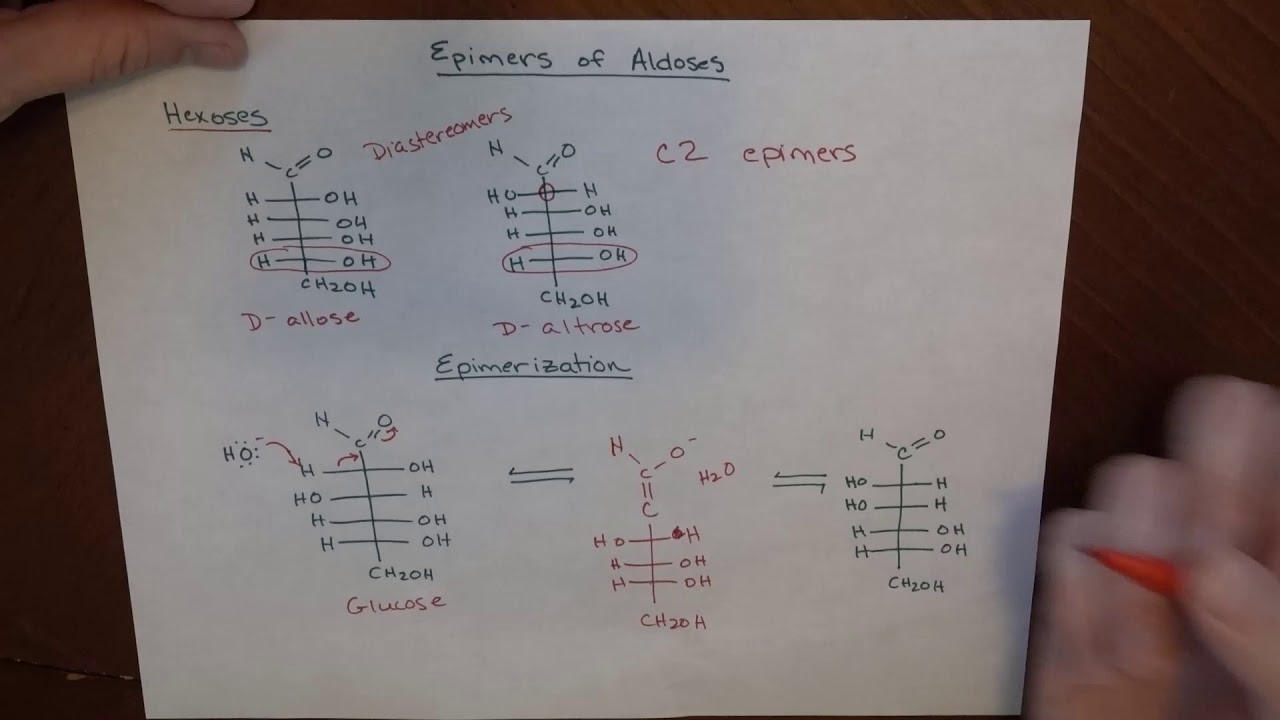 Epimers of Aldoses
Hexoses
Diastereomers
C2 epimers
H O
C
H OH
H OH
H OH
H OH
CH2OH
D-allose
H O
C
HO H
H OH
H OH
H OH
CH2OH
D-altrose
Epimerization
HO:-
H O
C
H OH
HO H
H OH
H OH
CH2OH
Glucose
H O-
C
H2O
C
HO H
H OH
H OH
CH2OH
H O
C
HO H
HO H
H OH
H OH
CH2OH